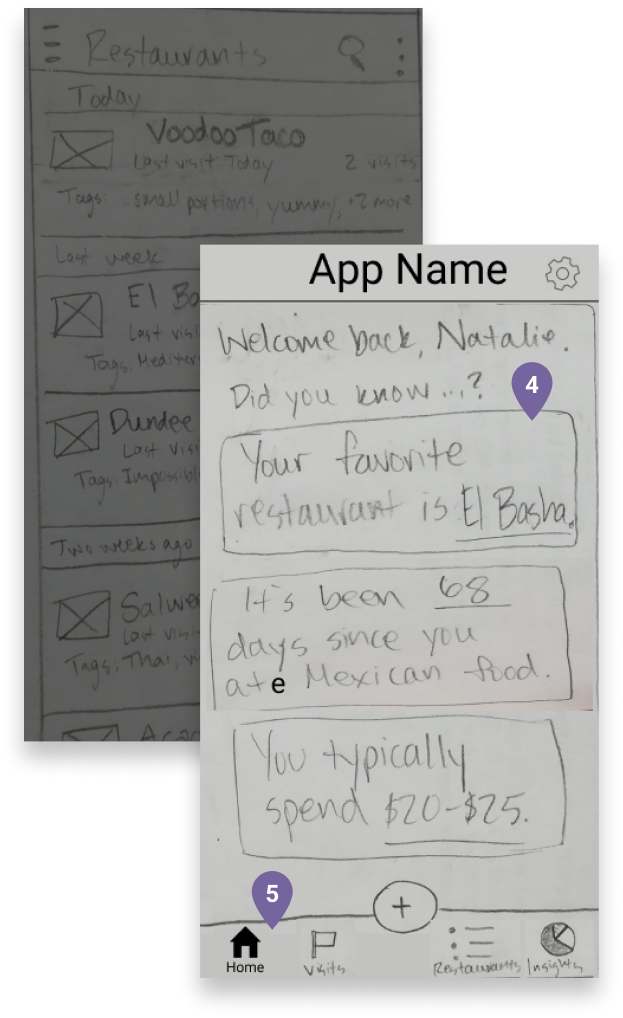 Restaurants
Today
Voodoo Taco
Last visit: Today 2 visits
Tags: small portions, yummy, +2 more
Last week
El Ba
Last visi
Tags: Mediter
Dundee
Last visi
Tags: Impossibl
Two weeks ago
Salwe
Last visi
Tags: Thai, vi
Aca
App Name
Welcome back, Natalie.
Did you know...?
4
Your favorite
restaurant is El Basha.
It's been 68
days since you
ate Mexican food.
You typically
spend $20-$25.
5
+
Home
Visits
Restaurants
Insights